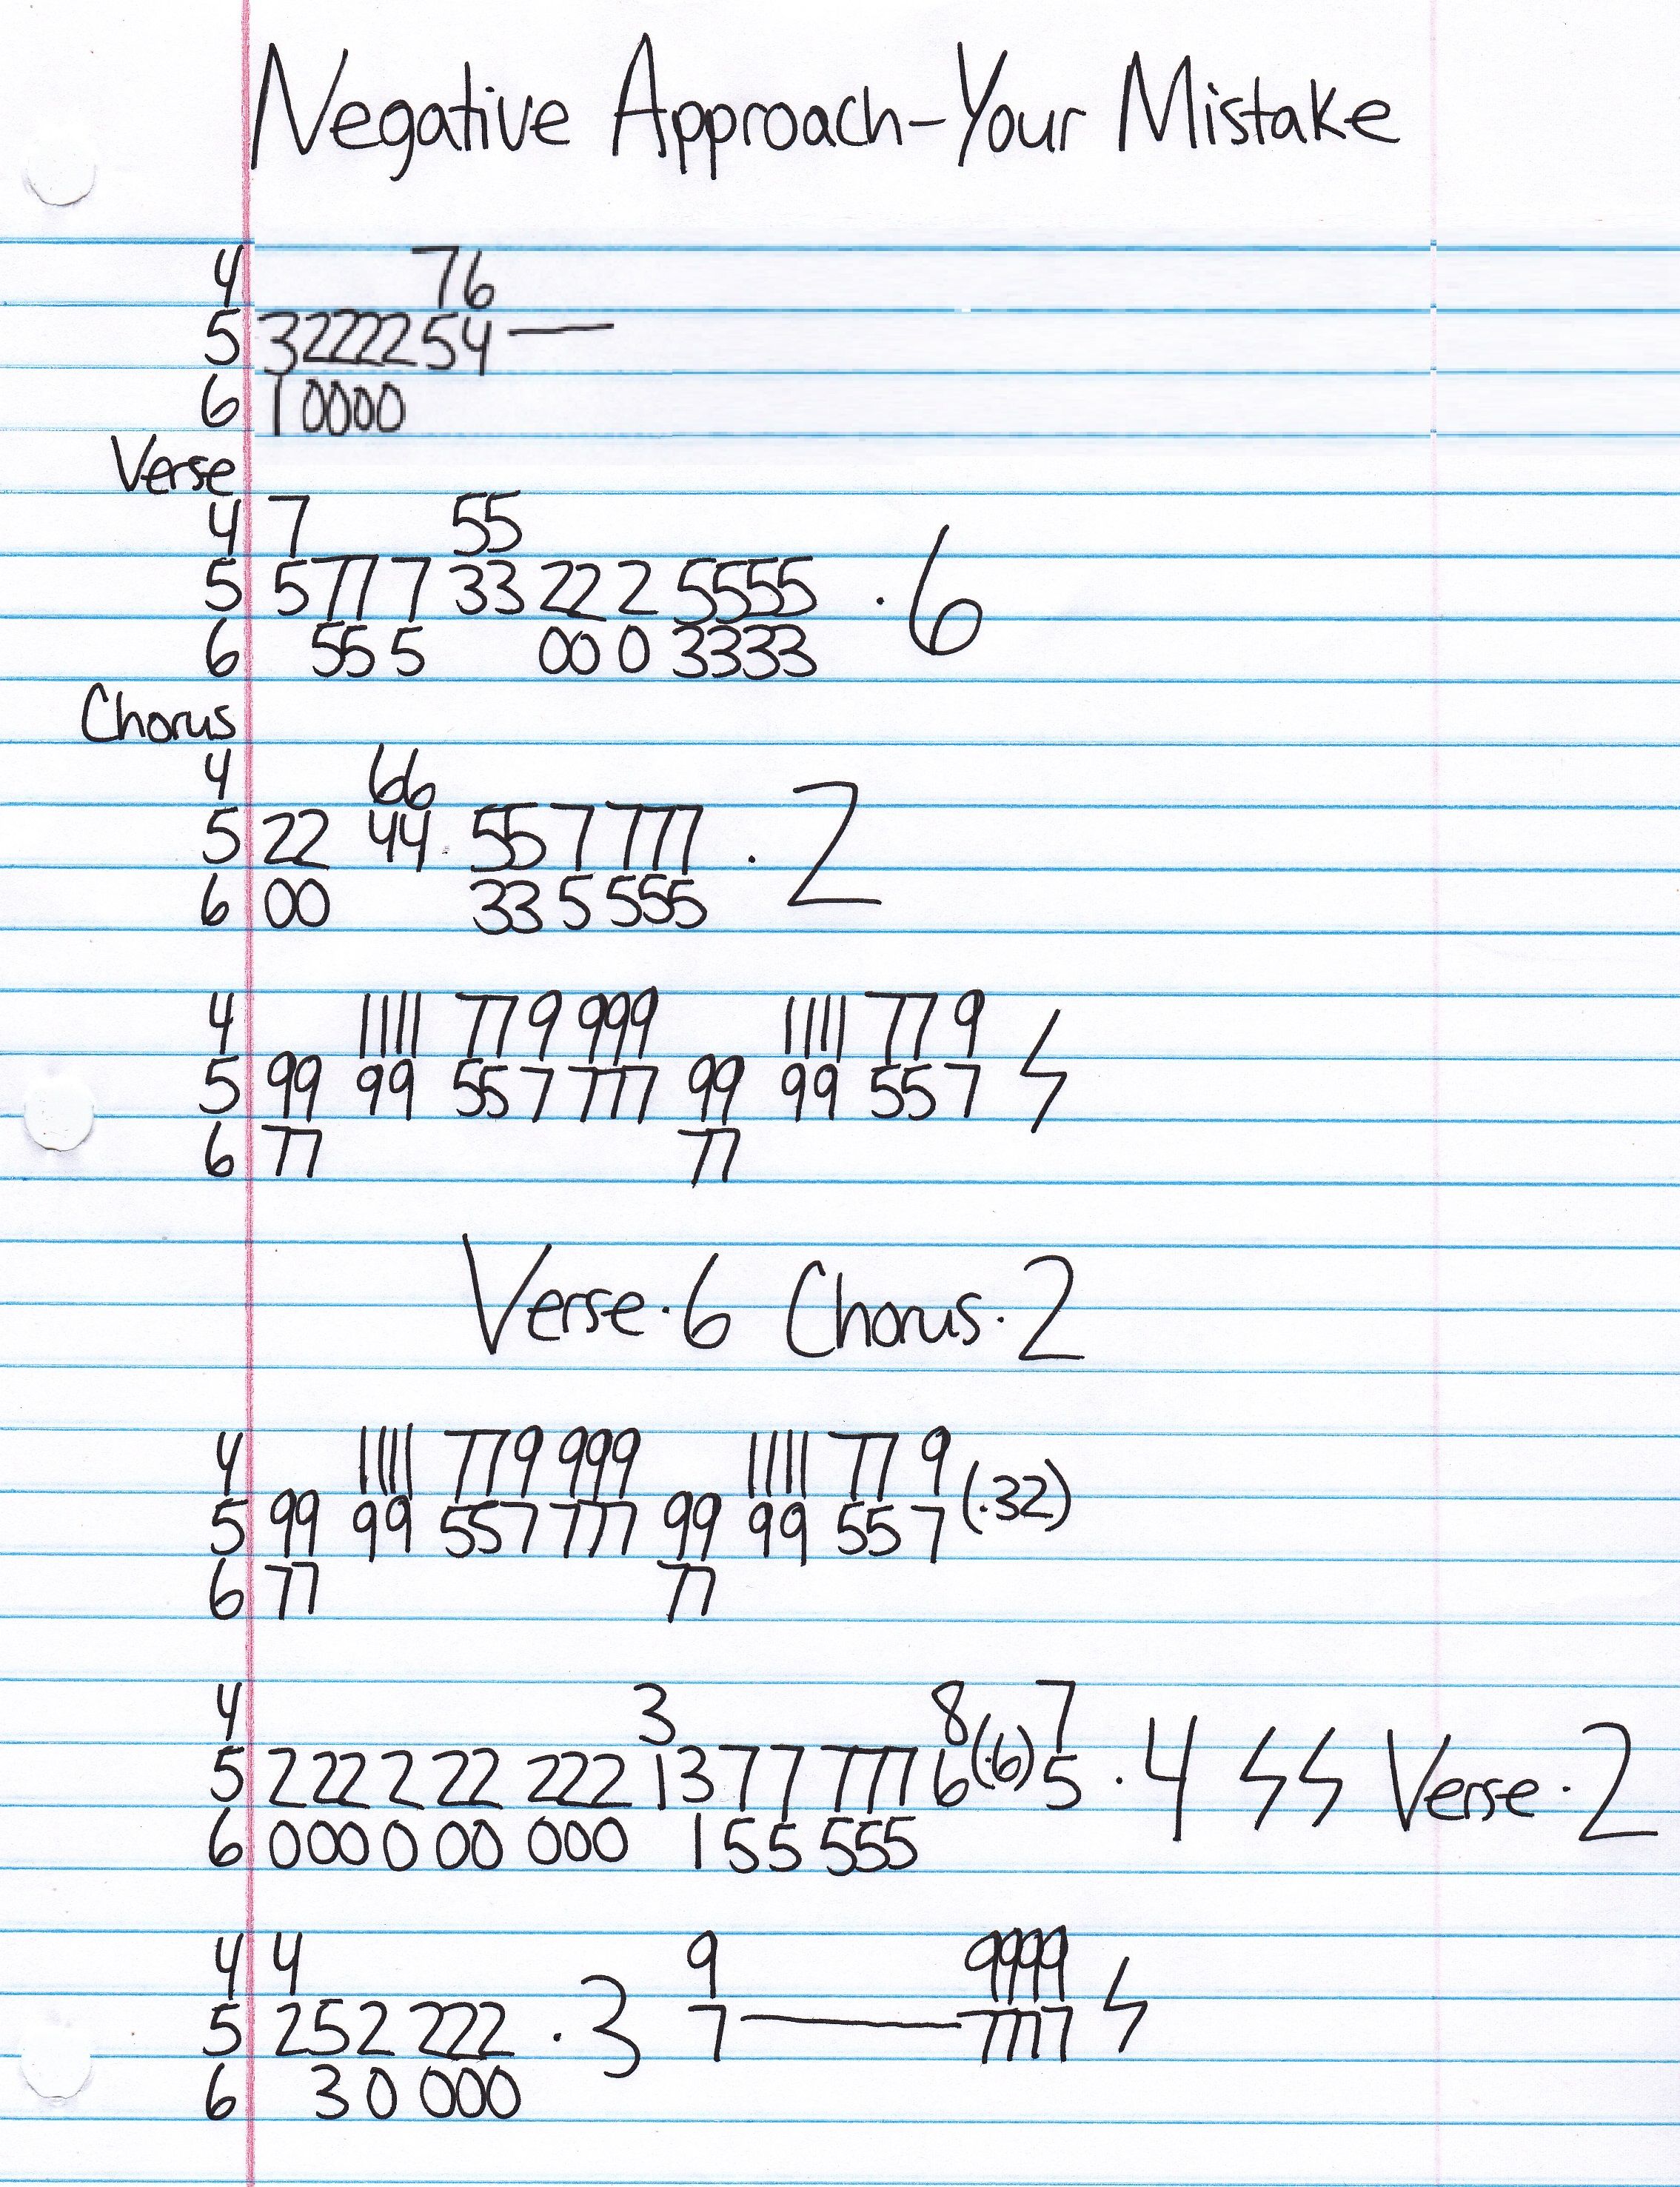 Negative Approach-Your Mistake
4 76
5 3222254 —
6 10000
Verse
4 7 55
5 577 7 33 22 2 5555 . 6
6 55 5 00 0 3333
Chorus
4 66
5 22 44 55 7 777 . 2
6 00 33 5 555
4 1111 77 9 999 1111 77 9
5 99 99 55 7 777 99 99 55 7
6 77 77
Verse.6 Chorus.2
4 1111 779 999 1111 77 9
5 99 99 557 777 99 99 55 7 (.32)
6 77 77
4 3 8 7
5 222 2 22 222 1377 777 6(.6)5 . 4 Verse.2
6 000 0 00 000 155 555
4 4 9 9999
5 252 222 . 3 7 — 7777
6 30 000